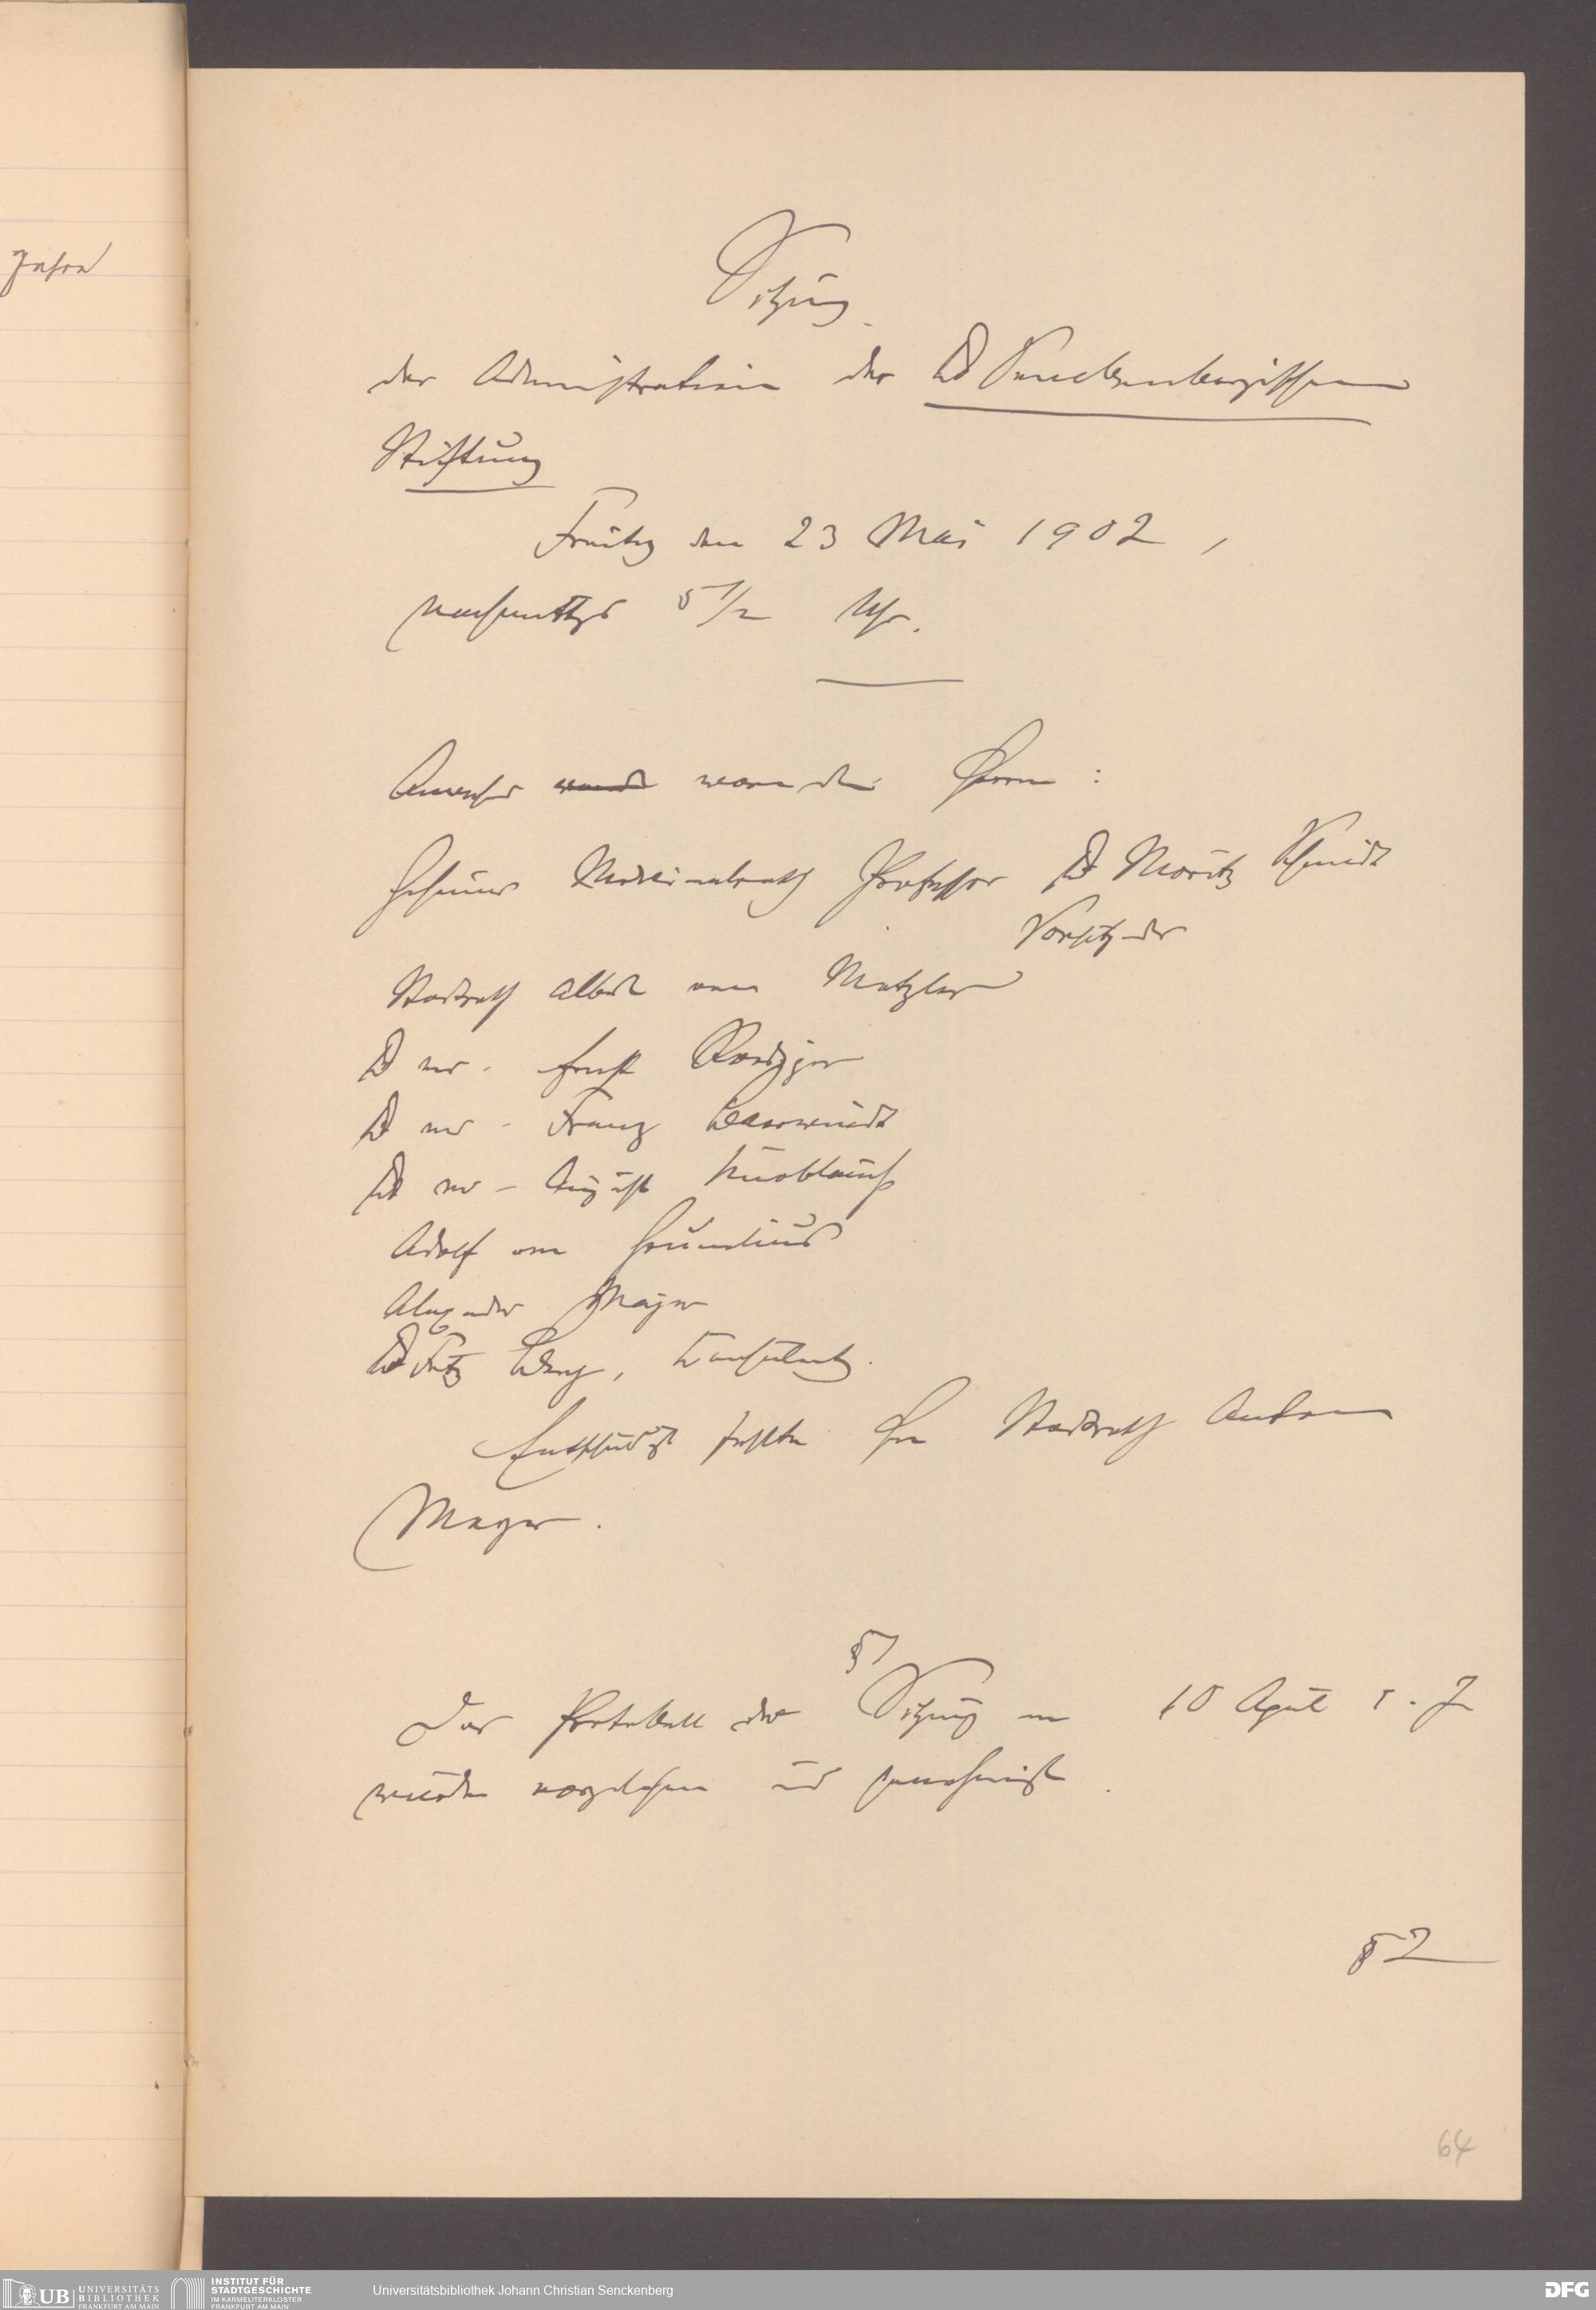 Sitzung
der Administration der Dr Senckenbergischen
Stiftung
Freitag den 23 Mai 1902,
nachmittgs 5 1/2 Uhr.
Anwesend waren die Herrn:
Geheimer Medicinalrath Professor Dr Moritz Schmidt
Vorsitzender
Stadtrath Albert von Metzler
Dr med. Ernst Roediger
Dr med. Franz
Dr med. August Knoblauch
Adolf von Grunelius
Alexander Majer
Dr Fritz Berg, Konsulent.
Entschuldigt fehlte Herr Stadtrath Anton
Meyer.
§ 1
Das Protokoll der Sitzung vom 10 April l. J
wurde vorgelesen und genehmigt.
§ 2
64
UB UNIVERSITÄTS BIBLIOTHEK FRANKFURT AM MAIN
INSTITUT FÜR STADTGESCHICHTE IM KARMELITERKLOSTER FRANKFURT AM MAIN
Universitätsbibliothek Johann Christian Senckenberg
DFG